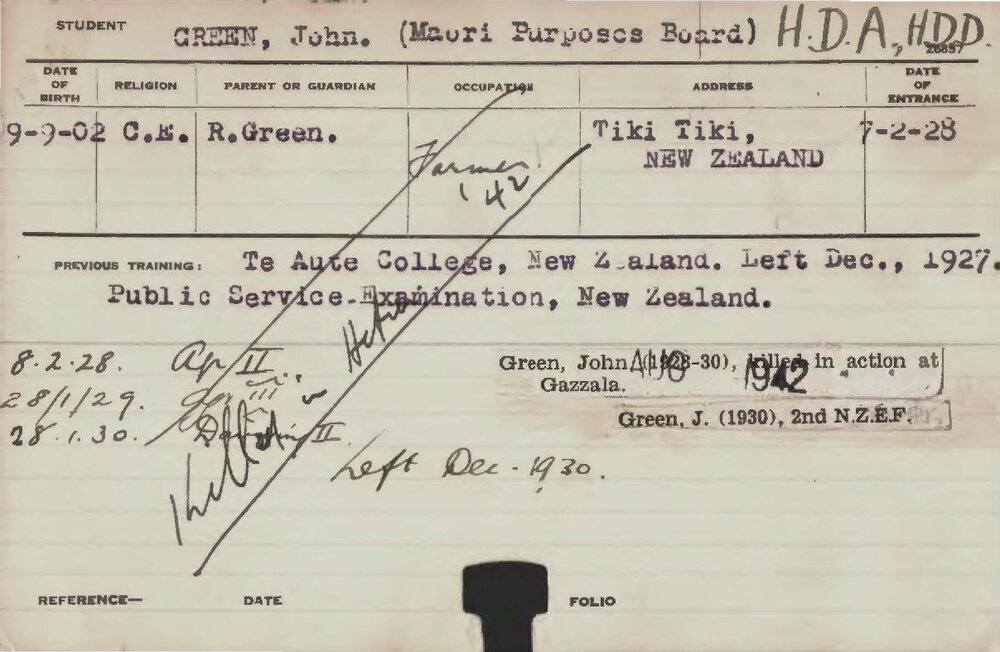 STUDENT GREEN, John. (Maori Purposes Board) H.D.A, H.D.D.
26857
DATE OF BIRTH RELIGION PARENT OR GUARDIAN OCCUPATION ADDRESS DATE OF ENTRANCE
9-9-02 C.E. R.Green. Farmer. Tiki Tiki, 7-2-28
NEW ZEALAND
'42
PREVIOUS TRAINING: Te Aute College, New Z aland. Left Dec., 1927.
Public Service Examination, New Zealand.
Killed Action
8.2.28. Ap II
Green, John (1928-30), killed in action at
Gazzala.
AUG 1942
28/1/29. III
Green, J. (1930), 2nd N.Z.E.F.
28.1.30. II
Left Dec. 1930.
REFERENCE— DATE FOLIO